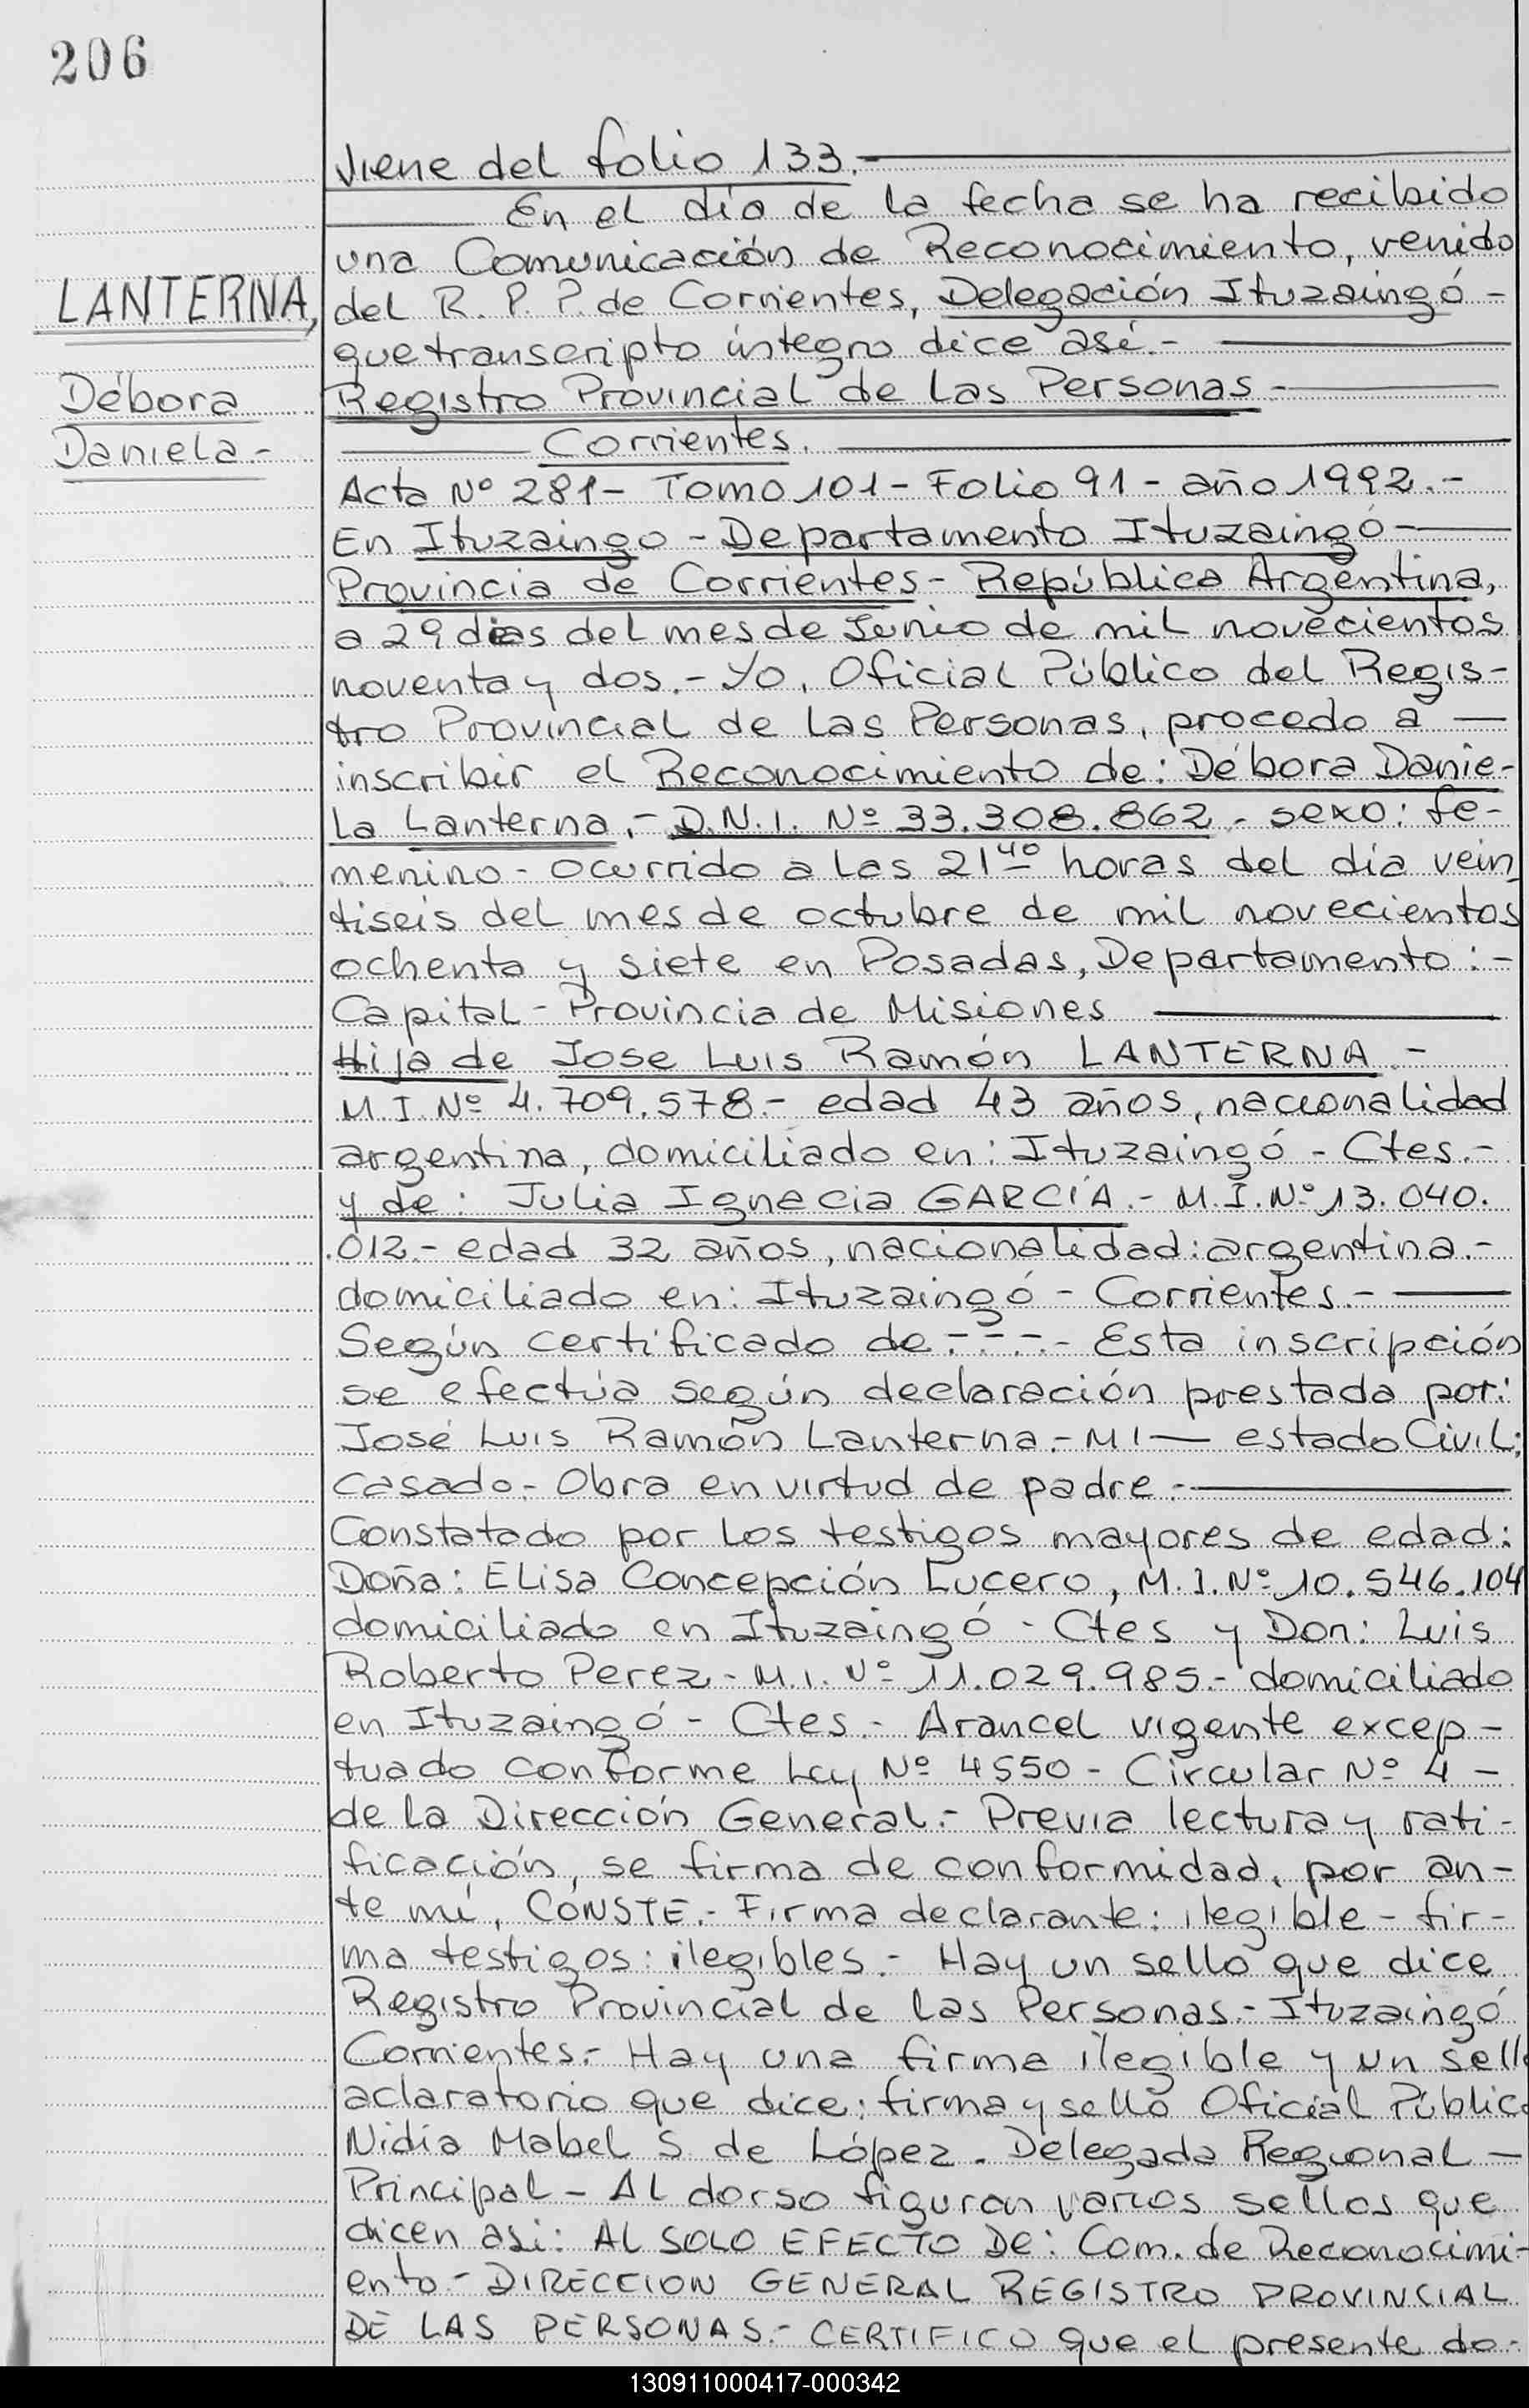 206
Viene del folio 133.-
En el día de la fecha se ha recibido
una Comunicación de Reconocimiento, venido
LANTERNA,
del R. P. P. de Corrientes, Delegación Ituzaingó -
que transcripto íntegro dice así.-
Débora
Registro Provincial de las Personas -
Daniela.-
Corrientes.
Acta Nº 281 - Tomo 101 - Folio 91 - año 1992.-
En Ituzaingo - Departamento Ituzaingó -
Provincia de Corrientes - República Argentina,
a 29 dias del mes de Junio de mil novecientos
noventa y dos.- Yo, Oficial Público del Regis-
tro Provincial de las Personas, procedo a —
inscribir el Reconocimiento de: Débora Danie-
la Lanterna.- D.N.I. Nº 33.308.862 - sexo: fe-
menino - ocurrido a las 21 40 horas del día vein
tiseis del mes de octubre de mil novecientos
ochenta y siete en Posadas, Departamento: -
Capital - Provincia de Misiones
Hija de Jose Luis Ramón LANTERNA.-
M.I. Nº 4.709.578.- edad 43 años, nacionalidad
argentina, domiciliado en: Ituzaingó - Ctes.-
y de: Julia Ignacia GARCÍA.- M.I. Nº 13.040.
.012.- edad 32 años, nacionalidad: argentina.-
domiciliado en: Ituzaingó - Corrientes.-
Según certificado de - - - - Esta inscripción
se efectúa según declaración prestada por:
José Luis Ramón Lanterna.- MI — estado Civil:
casado.- Obra en virtud de padre.-
Constatado por los testigos mayores de edad:
Doña: Elisa Concepción Lucero, M.I. Nº 10.546.104
domiciliado en Ituzaingó - Ctes y Don: Luis
Roberto Perez - M.I. Nº 11.029.985.- domiciliado
en Ituzaingó - Ctes - Arancel vigente excep-
tuado conforme Ley Nº 4550 - Circular Nº 4 -
de la Dirección General.- Previa lectura y rati-
ficación, se firma de conformidad, por an-
te mí, CONSTE.- Firma declarante: ilegible - fir-
ma testigos: ilegibles.- Hay un sello que dice
Registro Provincial de las Personas.- Ituzaingó
Corrientes.- Hay una firma ilegible y un sello
aclaratorio que dice: firma y sello Oficial Público
Nidia Mabel S. de López. Delegada Regional —
Principal - Al dorso figuran varios sellos que
dicen asi: AL SOLO EFECTO DE: Com. de Reconocimi-
ento - DIRECCION GENERAL REGISTRO PROVINCIAL
DE LAS PERSONAS.- CERTIFICO que el presente do-
130911000417-000342